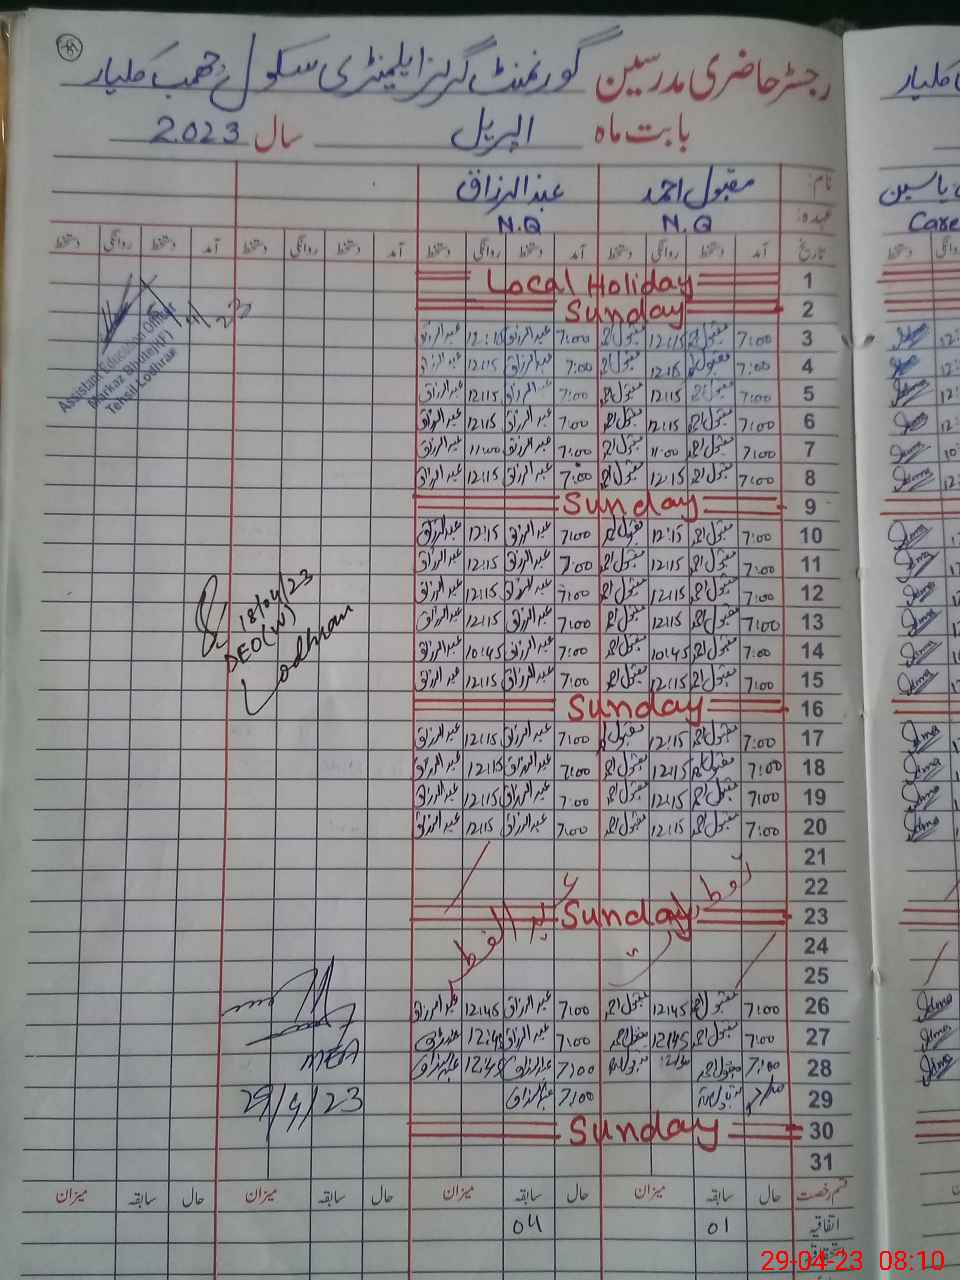 رجسٹر حاضری مدرسین گورنمنٹ گرلز ایلیمنٹری سکول جھمب ملیار
بابت ماہ اپریل سال 2023
نام: مقبول احمد عبدالرزاق
عہدہ: N.Q N.Q
تاریخ آمد دستخط روانگی دستخط آمد دستخط روانگی دستخط آمد دستخط روانگی دستخط آمد دستخط روانگی دستخط
1 Local Holiday
2 Sunday
3 7:00 مقبول احمد 12:15 مقبول احمد 7:00 عبدالرزاق 12:15 عبدالرزاق
4 7:00 مقبول احمد 12:15 مقبول احمد 7:00 عبدالرزاق 12:15 عبدالرزاق
5 7:00 مقبول احمد 12:15 مقبول احمد 7:00 عبدالرزاق 12:15 عبدالرزاق
6 7:00 مقبول احمد 12:15 مقبول احمد 7:00 عبدالرزاق 12:15 عبدالرزاق
7 7:00 مقبول احمد 11:00 مقبول احمد 7:00 عبدالرزاق 11:00 عبدالرزاق
8 7:00 مقبول احمد 12:15 مقبول احمد 7:00 عبدالرزاق 12:15 عبدالرزاق
9 Sunday
10 7:00 مقبول احمد 12:15 مقبول احمد 7:00 عبدالرزاق 12:15 عبدالرزاق
11 7:00 مقبول احمد 12:15 مقبول احمد 7:00 عبدالرزاق 12:15 عبدالرزاق
12 7:00 مقبول احمد 12:15 مقبول احمد 7:00 عبدالرزاق 12:15 عبدالرزاق
13 7:00 مقبول احمد 12:15 مقبول احمد 7:00 عبدالرزاق 12:15 عبدالرزاق
14 7:00 مقبول احمد 10:45 مقبول احمد 7:00 عبدالرزاق 10:45 عبدالرزاق
15 7:00 مقبول احمد 12:15 مقبول احمد 7:00 عبدالرزاق 12:15 عبدالرزاق
16 Sunday
17 7:00 مقبول احمد 12:15 مقبول احمد 7:00 عبدالرزاق 12:15 عبدالرزاق
18 7:00 مقبول احمد 12:15 مقبول احمد 7:00 عبدالرزاق 12:15 عبدالرزاق
19 7:00 مقبول احمد 12:15 مقبول احمد 7:00 عبدالرزاق 12:15 عبدالرزاق
20 7:00 مقبول احمد 12:15 مقبول احمد 7:00 عبدالرزاق 12:15 عبدالرزاق
21
22
23 Sunday
24
25
26 7:00 مقبول احمد 12:45 مقبول احمد 7:00 عبدالرزاق 12:45 عبدالرزاق
27 7:00 مقبول احمد 12:45 مقبول احمد 7:00 عبدالرزاق 12:45 عبدالرزاق
28 7:00 مقبول احمد مقبول احمد 7:00 عبدالرزاق 12:45 عبدالرزاق
29 مقبول احمد 7:00 عبدالرزاق
30 Sunday
31
قسم رخصت حال سابقہ میزان حال سابقہ میزان حال سابقہ میزان حال سابقہ میزان
اتفاقیہ 01 04
Assistant Education Officer
Tehsil Lodhran
18/04/23
DEO(W)
Lodhran
MEA
29/4/23
یاسین
29-04-23 08:10